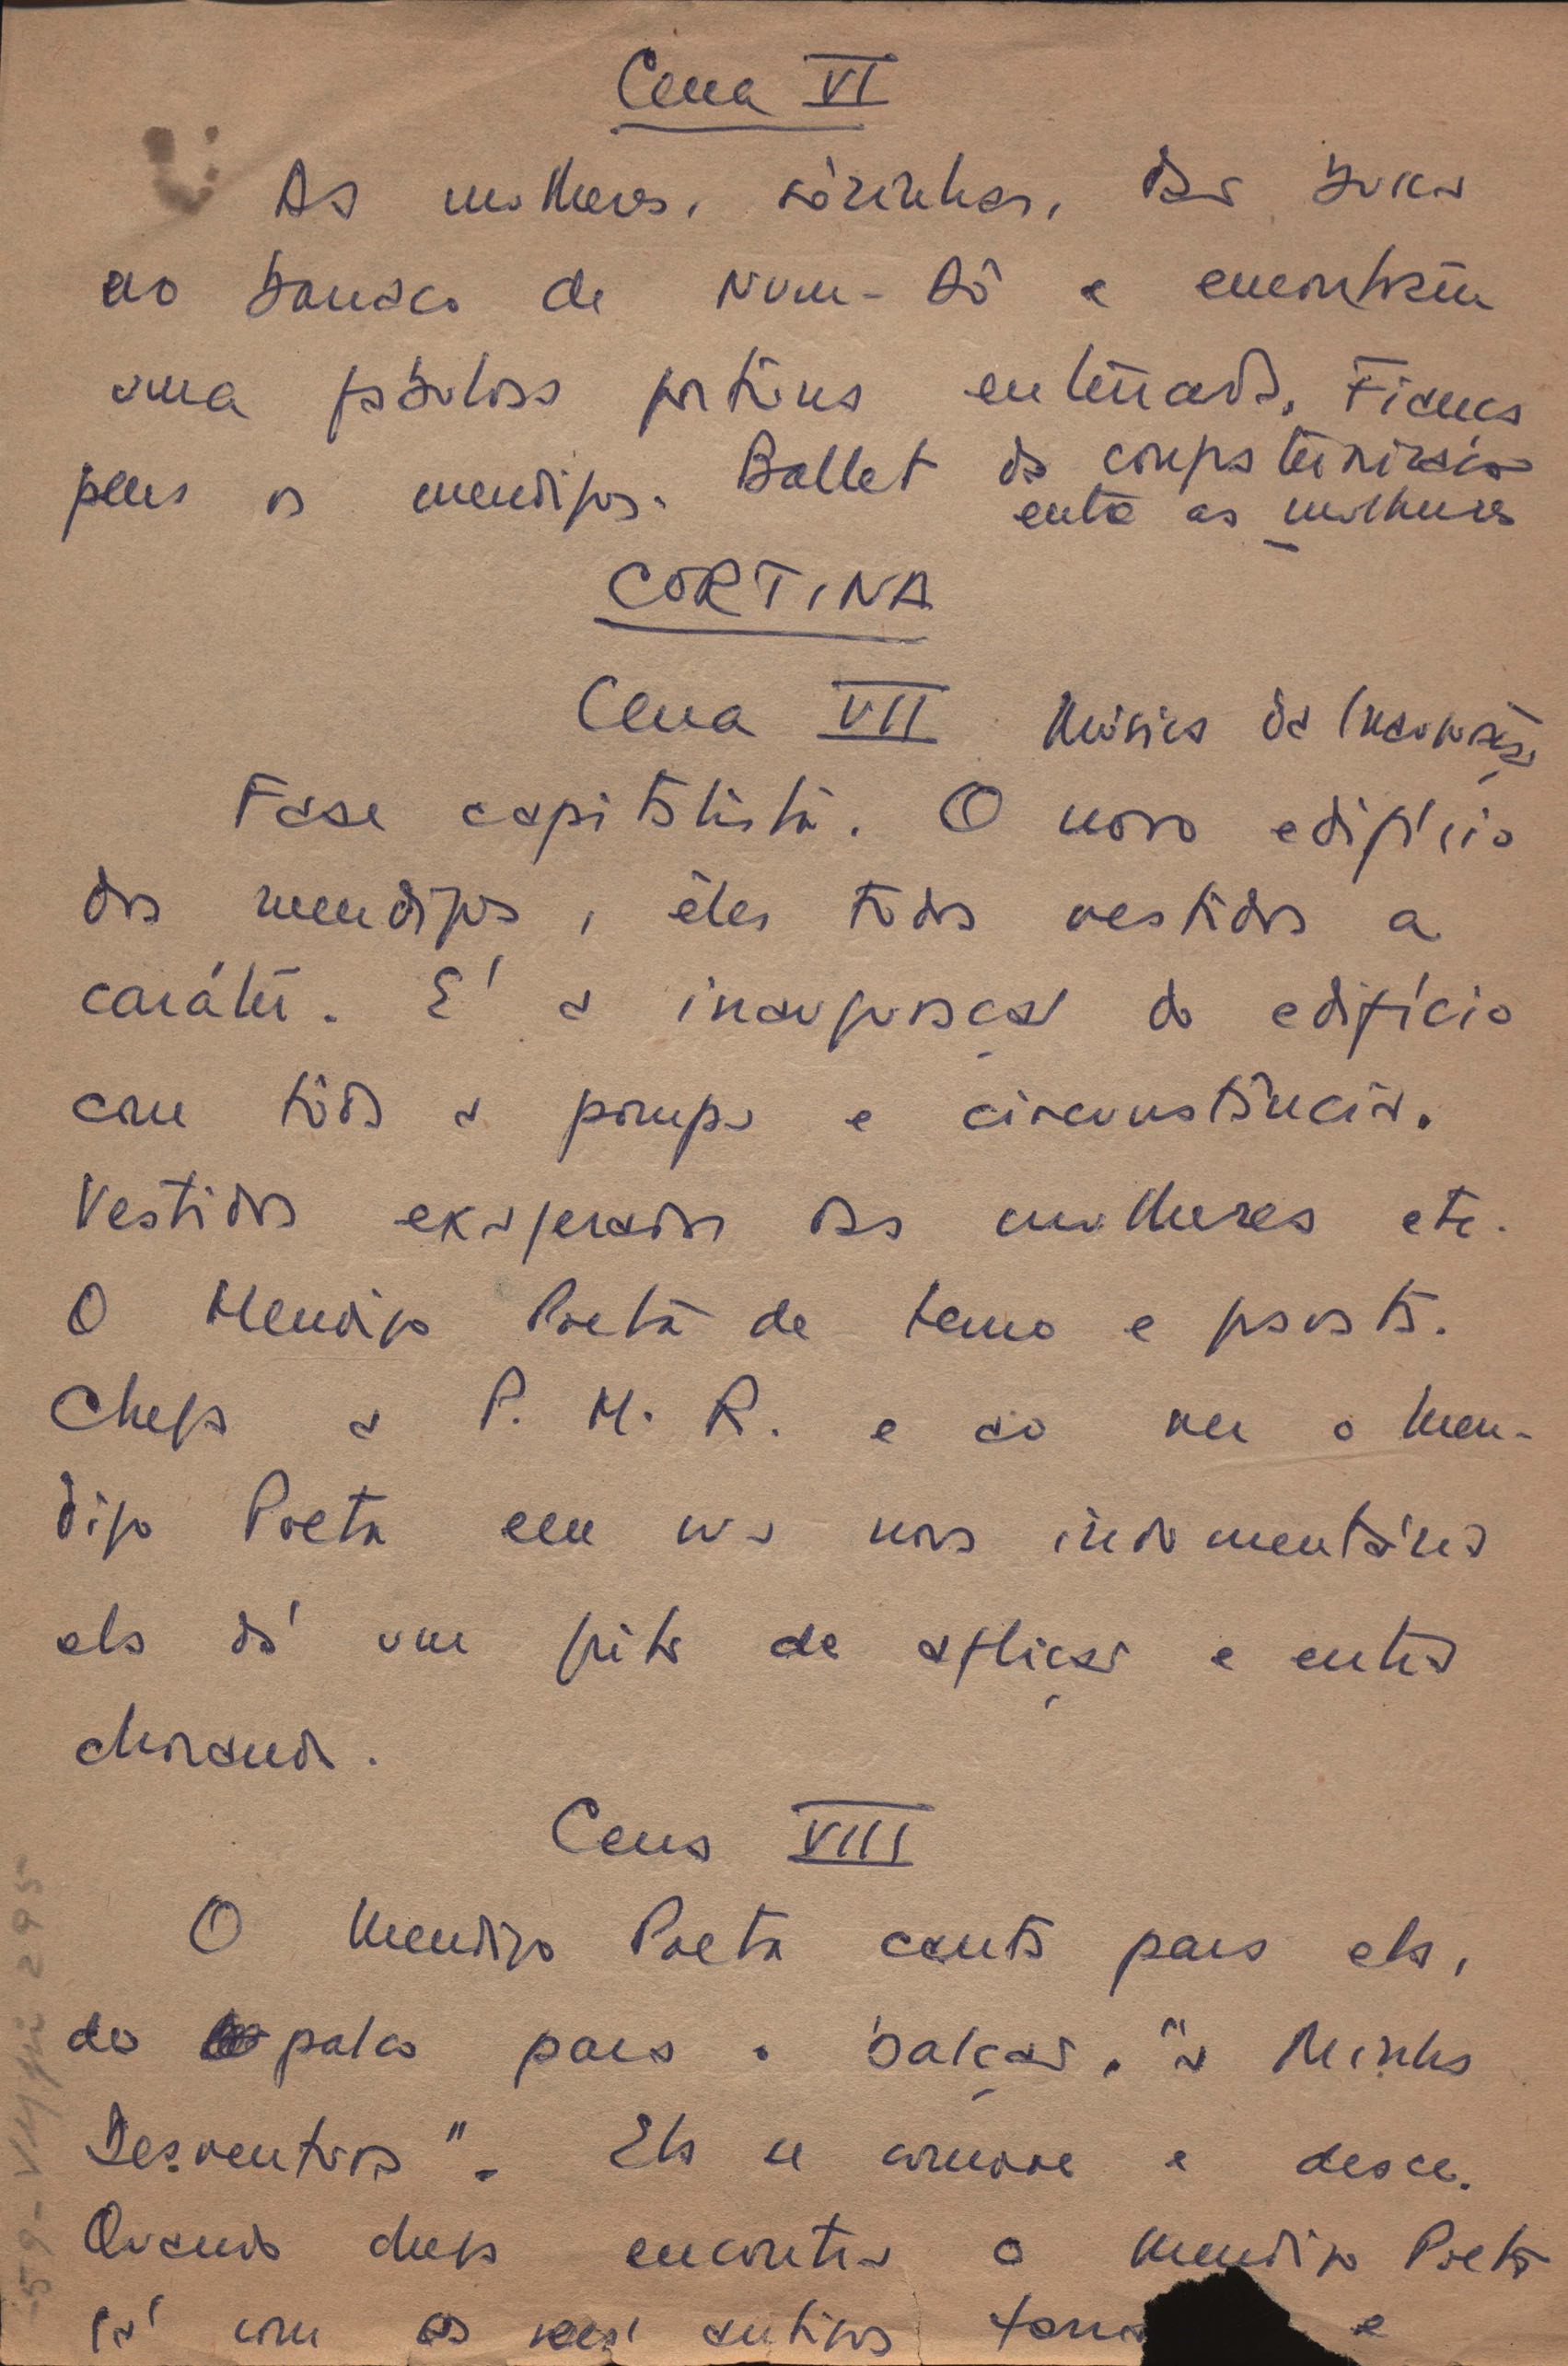 Cena VI
As mulheres, sòzinhas, dão busca
ao barraco de Num-Dô e encontram
uma fabulosa fortuna enterrada. Ficamos
para os mendigos. Ballet da
entre as mulheres
CORTINA
Cena VII Música da Inauguração
Fase capitalista. O novo edifício
dos mendigos, êles todos vestidos a
caráter. É a inauguração do edifício
com tôda a pompa e circunstância.
Vestidos exagerados das mulheres etc.
O Mendigo Poeta de terno e gravata.
Chega a P. M. R. e ao ver o Men-
digo Poeta em sua nova indumentária
ela dá um grito de aflição e entra
chorando.
Cena VIII
O Mendigo Poeta canta para ela,
do palco para o balcão, "a Minha
Desventura". Ela se comove e desce.
Quando chega encontra o Mendigo Poeta
já com os seus antigos e